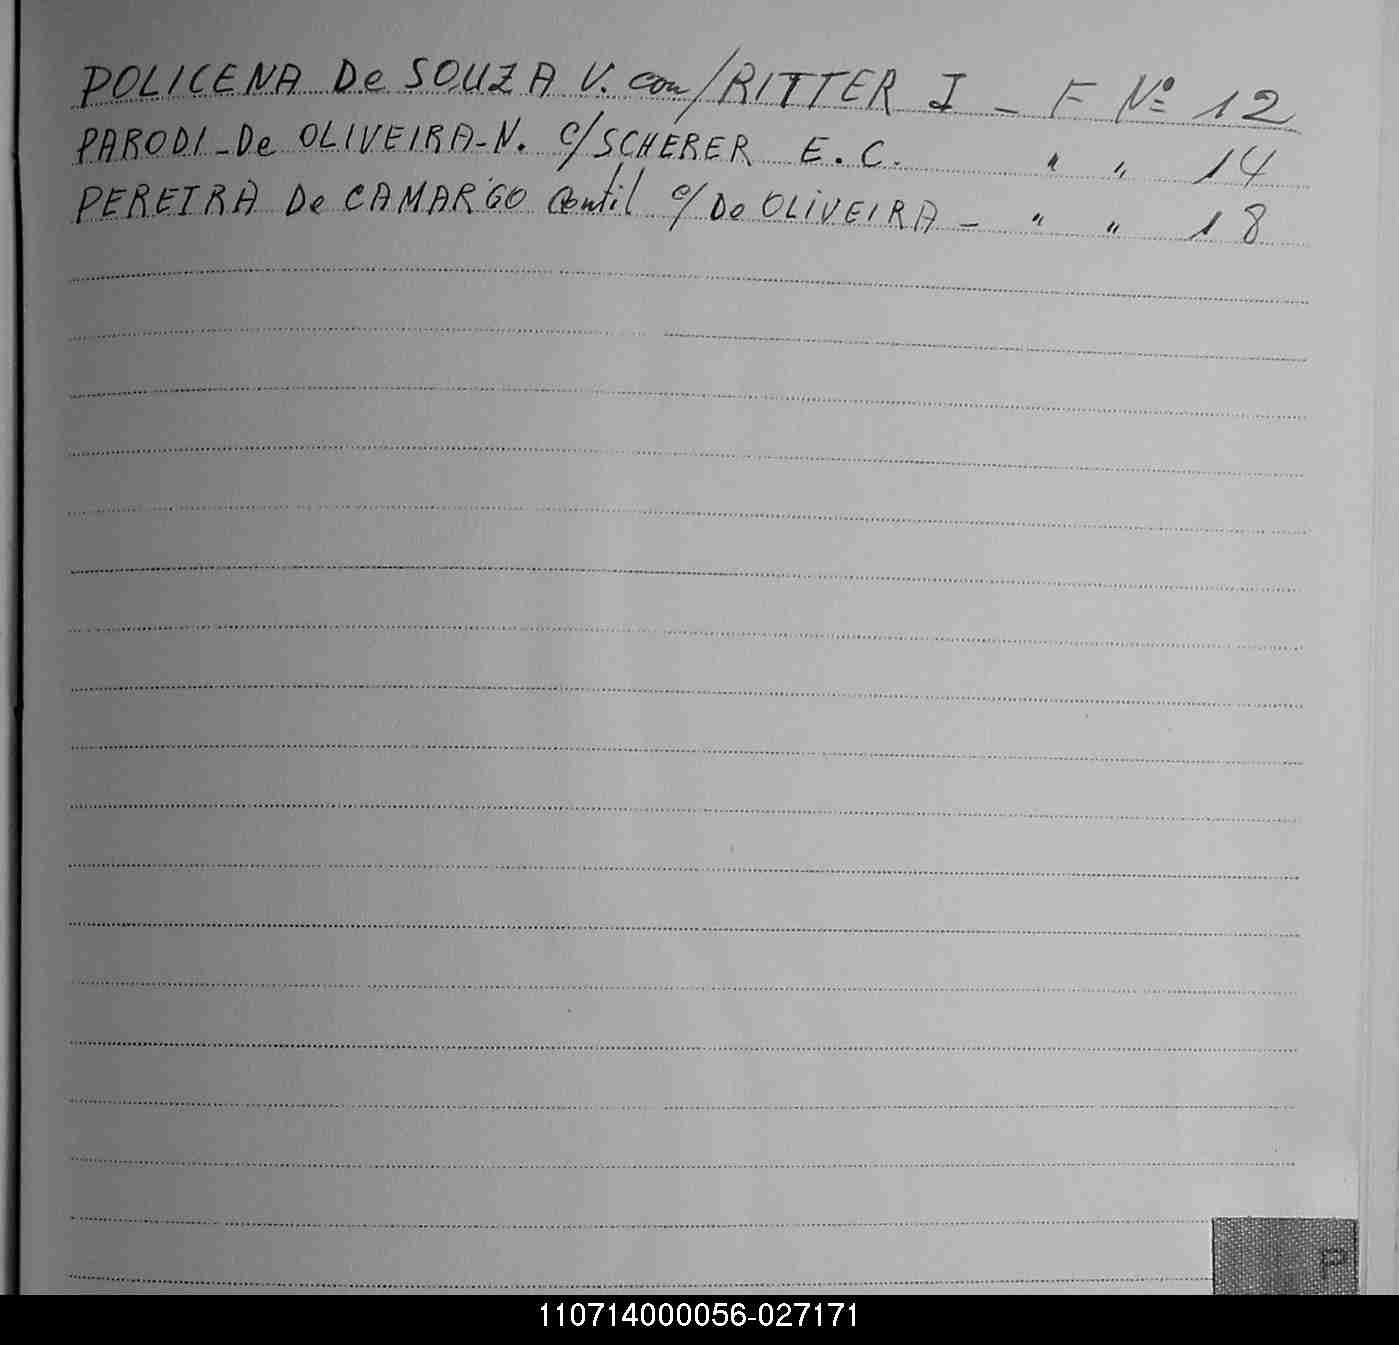 POLICENA De SOUZA V. con/RITTER I - F Nº 12
PARODI-De OLIVEIRA-N. c/SCHERER E.C. " " 14
PEREIRA De CAMARGO c/ De OLIVEIRA - " " 18
P
110714000056-027171